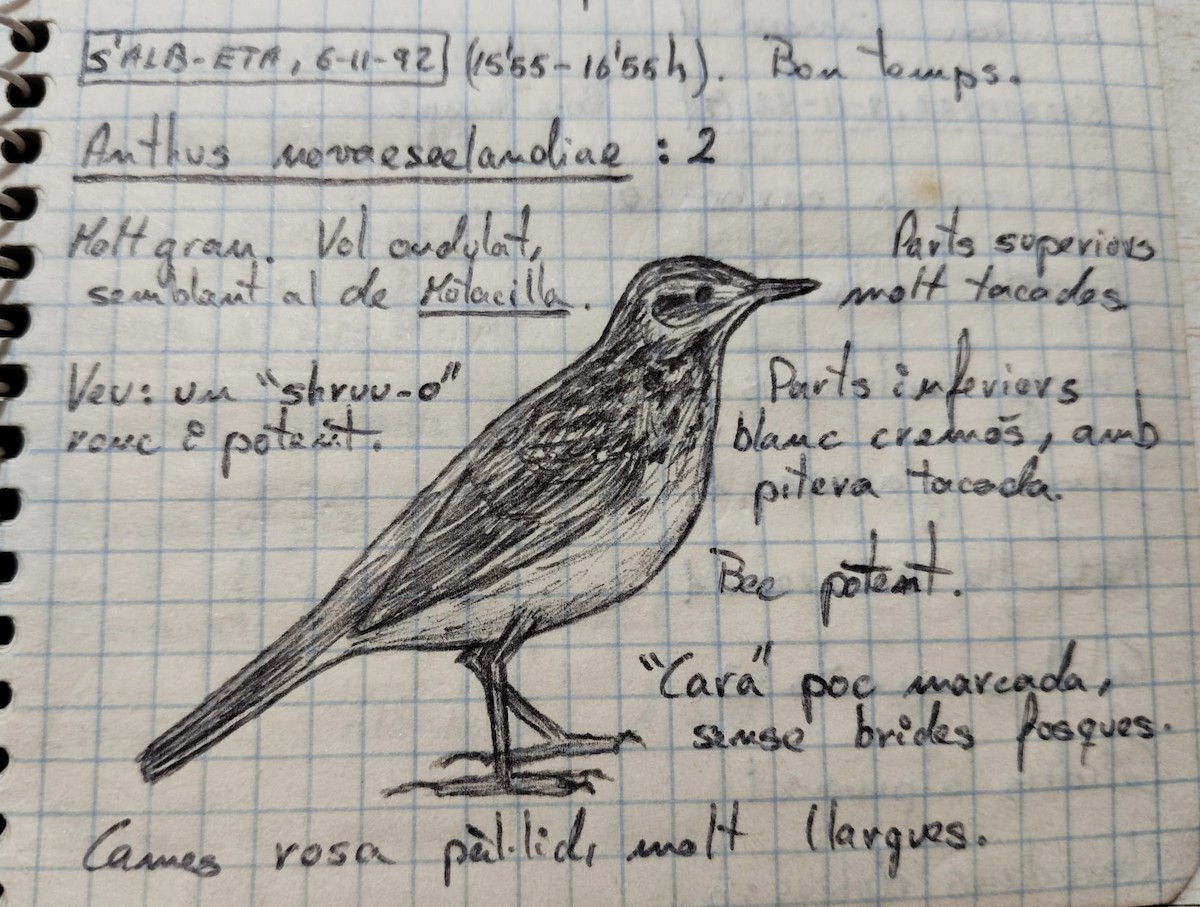 S'ALB-ETA, 6-11-92 (15'55-16'55h). Bon temps.
Anthus novaeseelandiae : 2
Molt gran. Vol ondulat,
semblant al de Motacilla.
Parts superiors
molt tacades
Veu: un "shruu-o"
ronc i potent.
Parts inferiors
blanc cremós, amb
pitera tacada.
Bec potent.
"Cara" poc marcada,
sense brides fosques.
Cames rosa pàl·lid, molt llargues.